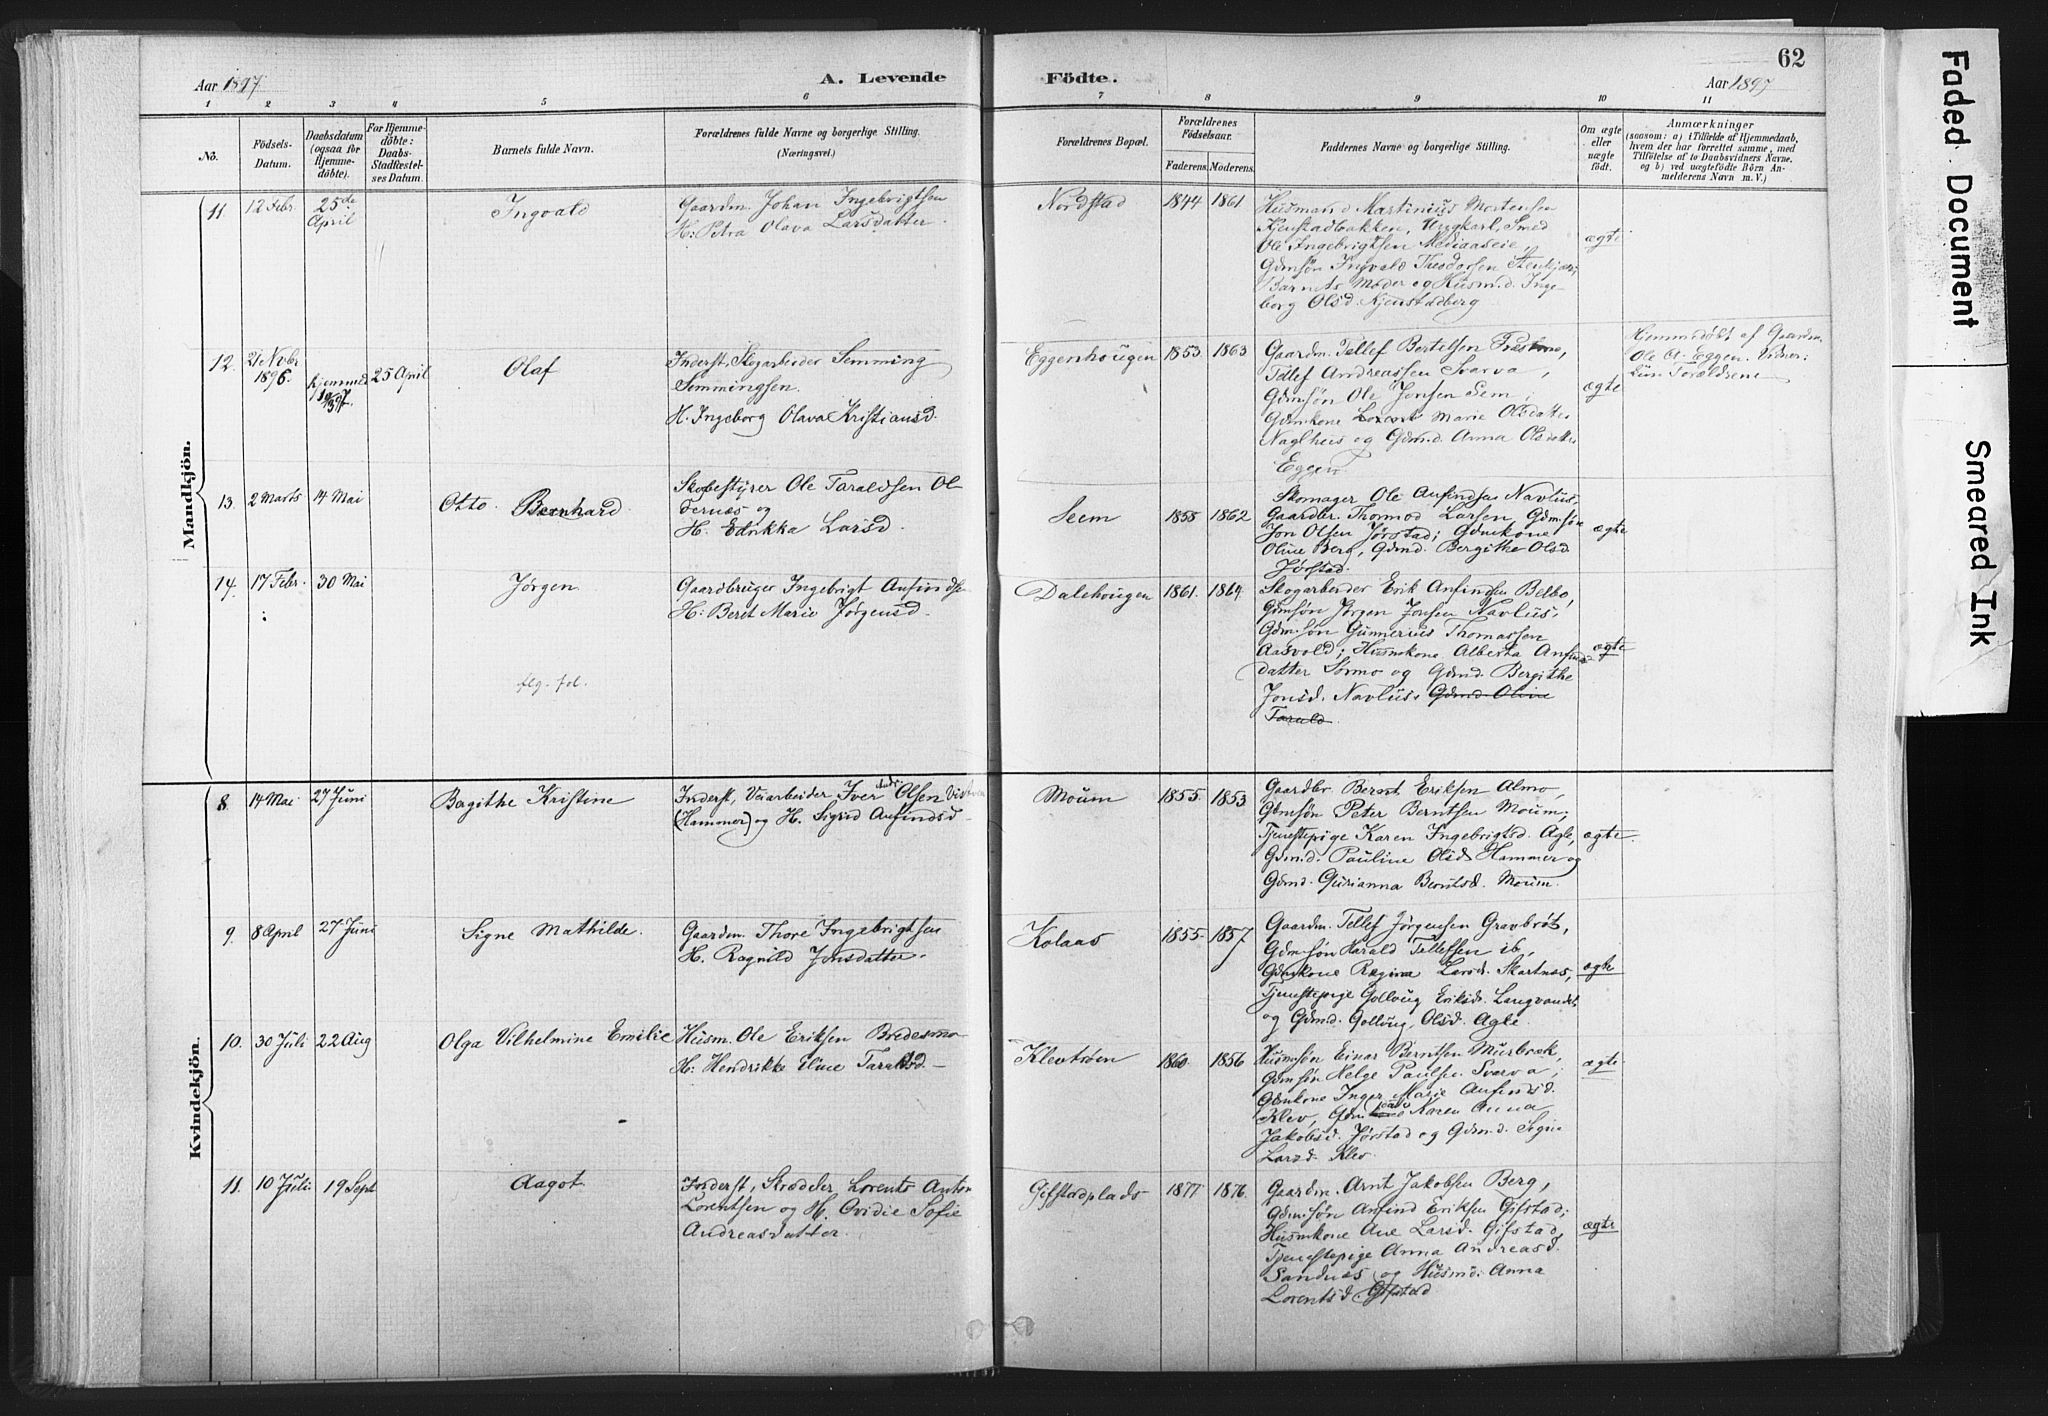 62
Aar 1897
A. Levende
Födte.
Aar 1897
1 2 3 4 5 6 7 8 9 10 11
No.
Födsels-
Datum.
Daabsdatum
(ogsaa for
Hjemme-
döbte).
For Hjemme-
döbte:
Daabs-
Stadfæstel-
ses Datum.
Barnets fulde Navn.
Forældrenes fulde Navne og borgerlige Stilling.
(Næringsvei.)
Forældrenes Bopæl.
Forældrenes
Födselsaar.
Faderens. Moderens.
Faddernes Navne og borgerlige Stilling.
Om ægte
eller
uægte
födt.
Anmærkninger
(saasom: a) i Tilfælde af Hjemmedaab,
hvem der har forrettet samme, med
Tilföielse af to Daabsvidners Navne,
og b) ved uægtefödte Börn An-
melderens Navn m. V.)
Mandkjön.
11. 12 Febr 25de
April
Ingvald
Gaardm. Johan Ingebrigtsen
H: Petra Olava Larsdatter.
Nordstad
1844 1861
Husmand Martinius Mortensen
Kjenstadbakken, Ungkarl, Smed
Ole Ingebrigtsen
Gdmsøn Ingvald Theodorsen
Barnets Moder og Husm.d. Inge-
borg Olsd. Kjenstadberg
ægte
12. 21 Novbr
1896.
hjemmed
25 April
Olaf
Inderst, Skogarbeider Semming
Semmingsen.
H. Ingeborg Olava Kristiansd.
Eggenhougen
1853 1863
Gaardm. Tellef Bertelsen
Tellef Andreassen Svarva,
Gdmsøn Ole Jonsen Sem,
Gdmkone Marie Olsdatter
og Gdm.d. Anna Olsdatter
Eggen
ægte
Hjemmedøbt af Gaardm.
Ole Eggen. Vidner:
Forældrene
13. 2 Marts 14 Mai
Otto Bernhard
Skobestyrer Ole Taraldsen
og
H. Larsd.
Seem
1855 1862
Skomager Ole Anfindsen Navlus,
Thomod Larsen Gdmsøn
Jon Olsen Jørstad; Gdmkone
Oline Berg, Gdmd. Bergithe Olsd.
Jørstad.
ægte
14. 17 Febr. 30 Mai
Jørgen
Gaardbruger Ingebrigt Anfindsen
H: Beret Marie Jørgensd.
flg. fol.
Dalehougen
1861. 1864.
Skogarbeider Erik Anfindsen Belbo,
Gdmsøn Jørgen Jonsen Navlus.
Gdm.søn Gunnerius Thomassen
Aasvold; Husmkone Alberta Anfinds-
datter Sørmo og Gdmd. Bergithe
Jonsd. Navlus. Gdmd. Oline
Tarald
ægte
Kvindekjön.
8 14 Mai 27 Juni
Bergithe Kristine
Inderst, Veiarbeider Iver Olsen
(Hammer) og H. Sigrid Anfindsd.
Moum
1855 1853
Gaardbr. Bernt Eriksen Almo,
Gdmsøn Peter Berntsen Moum;
Tjenestepige Karen Ingebrigtsd. Agle,
Gdm.d. Pauline Olsd Hammer og
Gdmd. Gurianna Berntsd. Moum.
ægte.
9. 8 April 27 Juni
Signe Mathilde.
Gaardm. Thore Ingebrigtsen
H. Ragnild Jonsdatter.
Kolaas
1855 1857
Gaardm. Tellef Jørgensen Gravbrøt,
Gdmsøn Harald Tellefsen ib.
Gdmkone Regina Larsd. Skartnæs,
Tjenestepige Gollaug Eriksd. Langvandet
og Gdmd. Gollaug Olsd. Agle.
ægte
10. 30 Juli 22 Aug
Olga Vilhelmine Emilie
Husm. Ole Eriksen Bredesmo
H: Hendrikke Eline Taraldsd.
Klevtrøen
1860 1856
Husmsøn Einar Berntsen Murbræk,
Gdmsøn Helge Paulsen Svarva;
Gdmkone Inger Marie Anfindsd.
Klev, Gdm Karen Anna
Jakobsd. Jørstad og Gdm.d.
Larsd. Klev
ægte
11. 10 Juli 19 Sept
Aagot.
Inderst, Skræder Lorents Anton
Lorentsen og H. Ovidie Sofie
Andreasdatter.
Gifstadplads
1877 1876
Gaardm. Arnt Jakobsen Berg,
Gdmsøn Anfind Eriksen Gifstad;
Husmkone Ane Larsd. Gifstad,
Tjenestepige Anna Andreasd.
Sandnæs og Husmd: Anna
Lorentsd. Gifstad
ægte
Faded Document
Smeared Ink